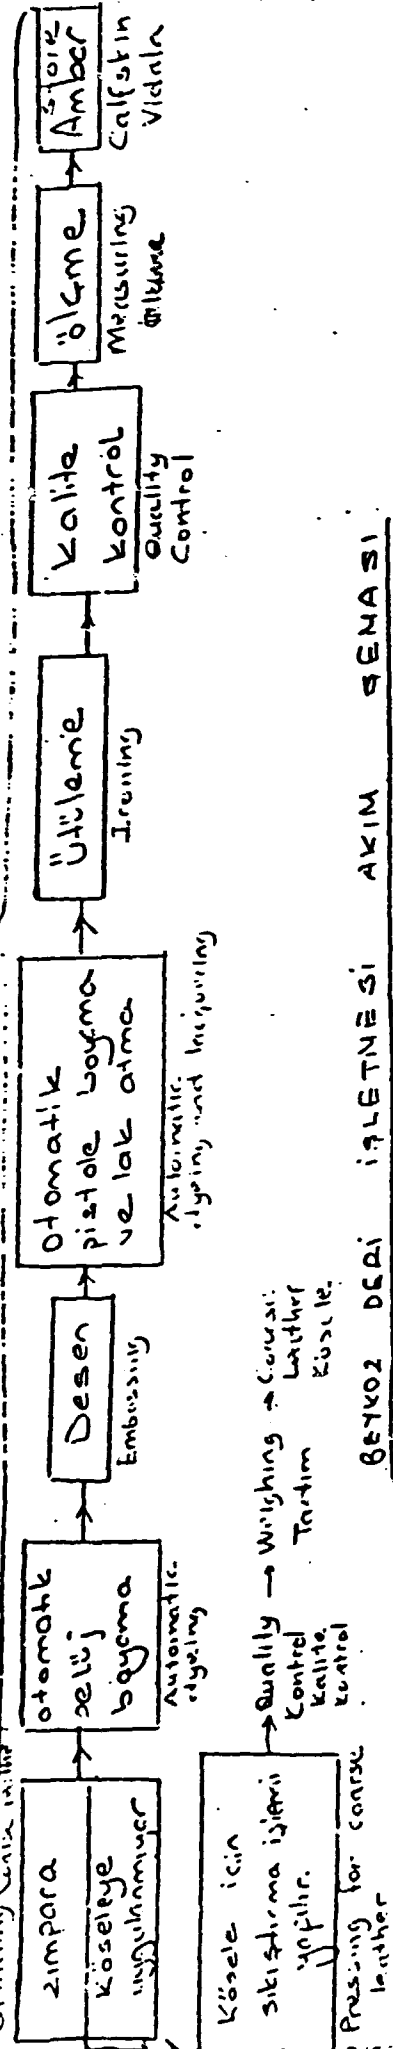 zımpara
Köseleye
uygulanmıyor
otomatik
selüj
boyama
Automatic
dyeing
Desen
Embossing
Otomatik
pistole boyama
ve lak atma
Automatic
dyeing and
Ütüleme
Ironing
Kalite
kontrol
Quality
Control
ölçme
Measuring
Ölçme
Store
Ambar
Calfskin
Vidala
Kösele için
sıkıştırma işlemi
yapılır.
Pressing for coarse
leather
→ Quality → Weighing → Coarse
Control Tartım Leather
Kalite Kösele
kontrol
BEYKOZ DERİ İŞLETMESİ AKIM ŞEMASI